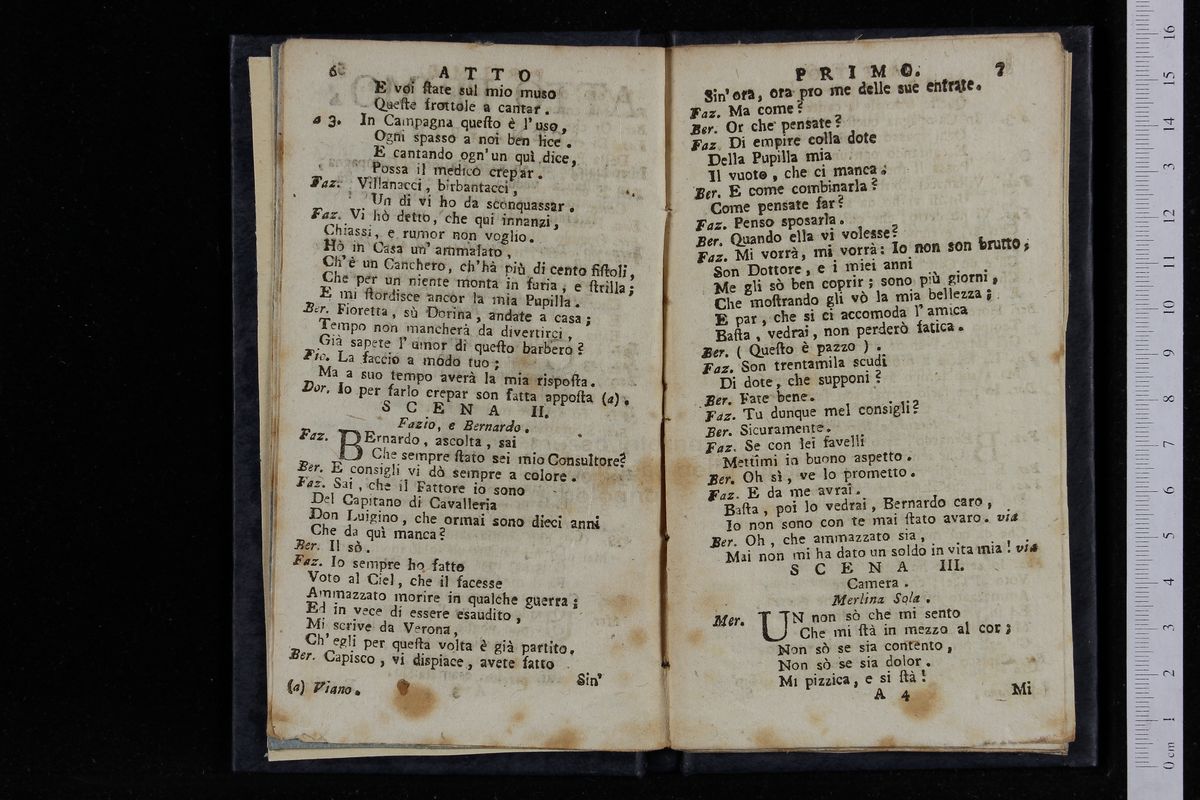 6 ATTO
E voi ſtate sul mio muso
Queſte frottole a cantar.
a 3. In Campagna queſto è l'uso,
Ogni spasso a noi ben lice.
E cantando ogn'un quì dice,
Possa il medico crepar.
Faz. Villanacci, birbantacci,
Un di vi ho da sconquassar.
Faz. Vi hò detto, che qui innanzi,
Chiassi, e rumor non voglio.
Hò in Casa un' ammalato,
Ch'è un Canchero, ch'hà più di cento fiſtoli,
Che per un niente monta in furia, e ſtrilla;
E mi ſtordisce ancor la mia Pupilla.
Ber. Fioretta, sù Dorina, andate a casa;
Tempo non mancherà da divertirci,
Già sapete l'umor di queſto barbero?
Fio. La faccio a modo tuo;
Ma a suo tempo averà la mia risposta.
Dor. Io per farlo crepar son fatta apposta (a).
SCENA II.
Fazio, e Bernardo.
Faz. BErnardo, ascolta, sai
Che sempre ſtato sei mio Consultore?
Ber. E consigli vi dò sempre a colore.
Faz. Sai, che il Fattore io sono
Del Capitano di Cavalleria
Don Luigino, che ormai sono dieci anni
Che da quì manca?
Ber. Il sò.
Faz. Io sempre ho fatto
Voto al Ciel, che il facesse
Ammazzato morire in qualche guerra;
Ed in vece di essere esaudito,
Mi scrive da Verona,
Ch'egli per queſta volta è già partito.
Ber. Capisco, vi dispiace, avete fatto
Sin'
(a) Viano.
PRIMO. 7
Sin' ora, ora pro me delle sue entrate.
Faz. Ma come?
Ber. Or che pensate?
Faz. Di empire colla dote
Della Pupilla mia
Il vuoto, che ci manca.
Ber. E come combinarla?
Come pensate far?
Faz. Penso sposarla.
Ber. Quando ella vi volesse?
Faz. Mi vorrà, mi vorrà: Io non son brutto;
Son Dottore, e i miei anni
Me gli sò ben coprir; sono più giorni,
Che moſtrando gli vò la mia bellezza;
E par, che si ci accomoda l'amica
Baſta, vedrai, non perderò fatica.
Ber. (Queſto è pazzo).
Faz. Son trentamila scudi
Di dote, che supponi?
Ber. Fate bene.
Faz. Tu dunque mel consigli?
Ber. Sicuramente.
Faz. Se con lei favelli
Mettimi in buono aspetto.
Ber. Oh sì, ve lo prometto.
Faz. E da me avrai.
Baſta, poi lo vedrai, Bernardo caro,
Io non sono con te mai ſtato avaro. via
Ber. Oh, che ammazzato sia,
Mai non mi ha dato un soldo in vita mia! via
SCENA III.
Camera.
Merlina Sola.
Mer. UN non sò che mi sento
Che mi ſtà in mezzo al cor;
Non sò se sia contento,
Non sò se sia dolor.
Mi pizzica, e si ſtà!
A 4 Mi
0 cm 1 2 3 4 5 6 7 8 9 10 11 12 13 14 15 16